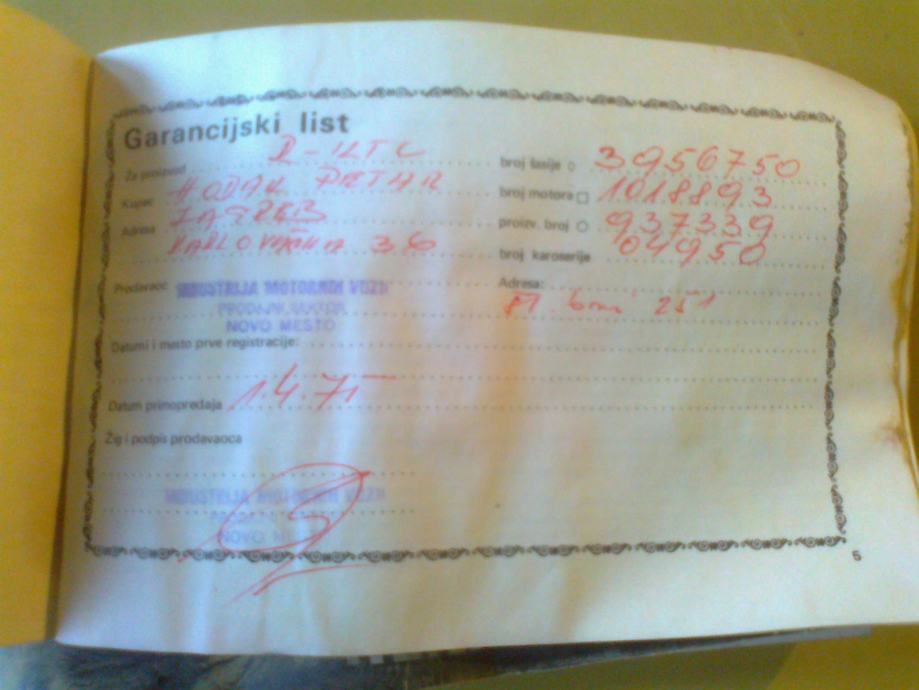 Garancijski list
Za proizvod R-12TL
Kupac HODAK PETAR
Adresa ZAGREB
KARLOVAČKA 36
broj šasije 3956750
broj motora 1018893
proizv. broj 937339
broj karoserije 04950
Prodavaoc INDUSTRIJA MOTORNIH VOZIL
PRODAJNI SEKTOR
NOVO MESTO
Adresa:
251
Datumi i mesto prve registracije:
Datum primopredaja 1.4.75
Žig i podpis prodavaoca
INDUSTRIJA MOTORNIH VOZIL
PRODAJNI SEKTOR
NOVO MESTO
5